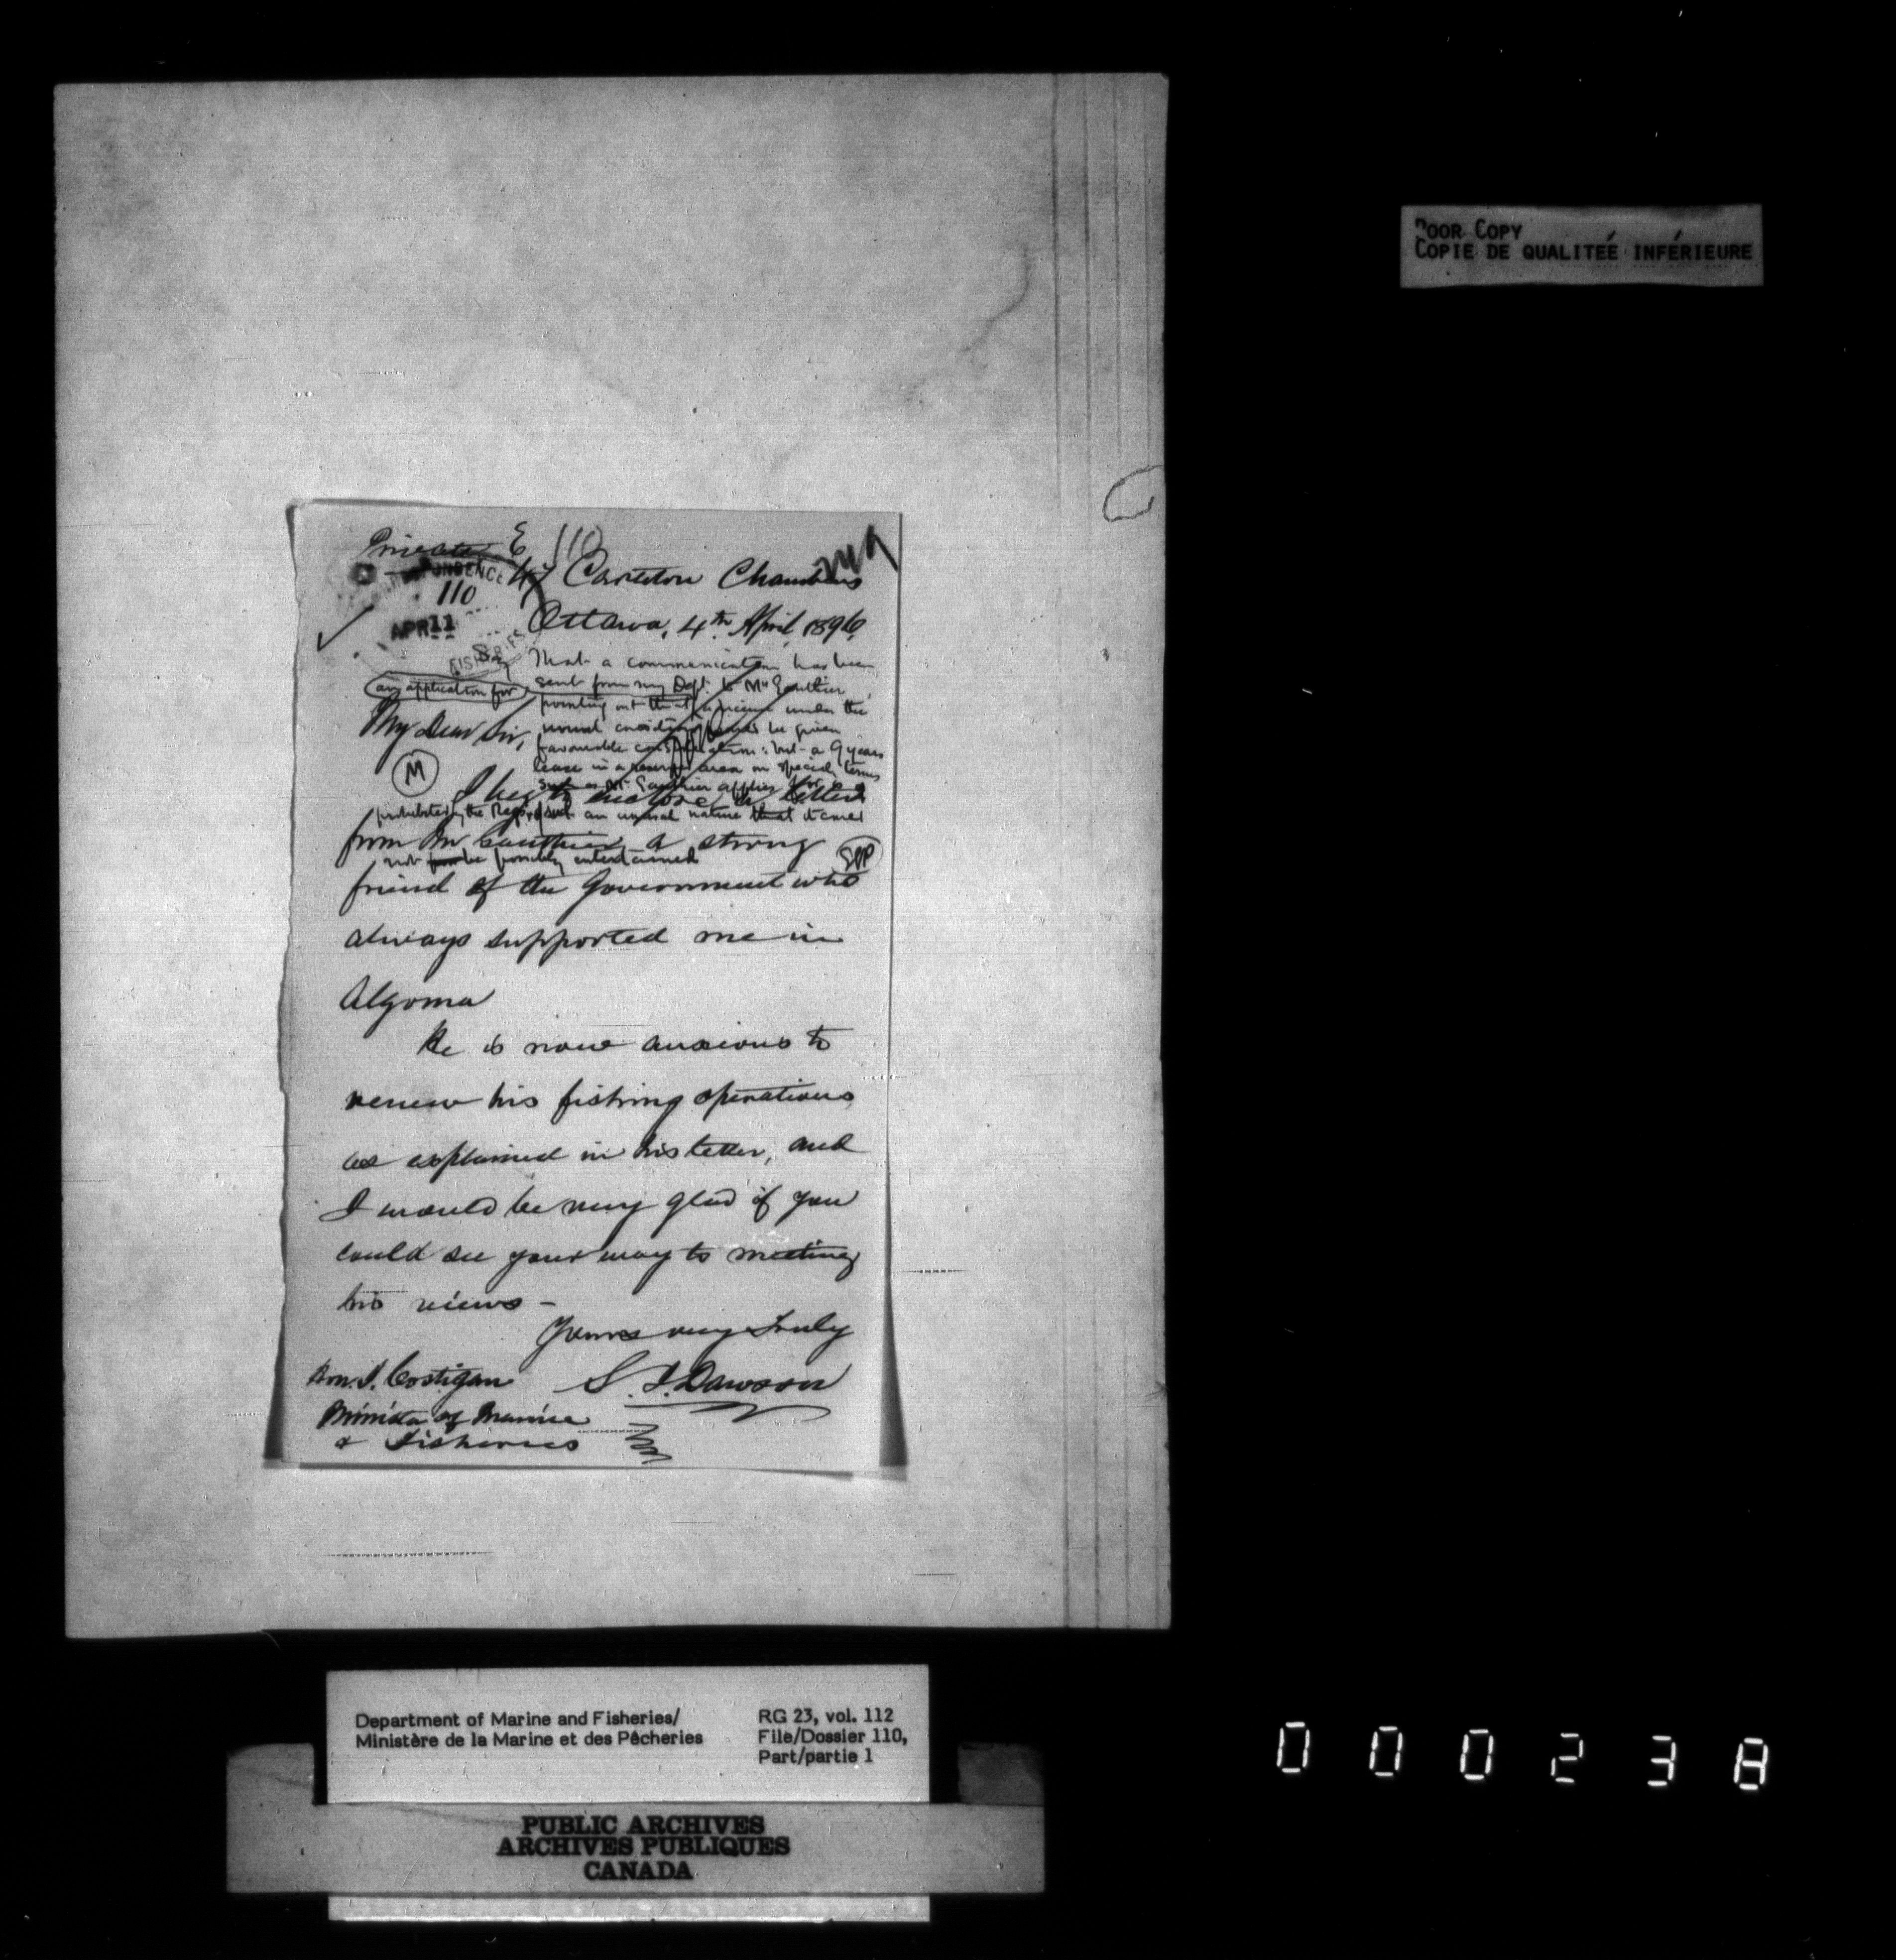 Private E 110
47 Carleton Chambers
CORRESPONDENCE
110
APR 11
FISHERIES
Ottawa, 4th April, 1896,
That a communication has been
sent from my Dept. to Mr Gauthier
an application for
pointing out that a license under the
usual conditions be given
favourable consideration: but a 9 years
lease in a reserve area on special terms
such as Mr Gauthier applies for is
prohibited by the Regs, of such an unusual nature that it could
not be possibly entertained
SPP
My Dear Sir,
M
I beg to enclose a letter
from Mr Gauthier a strong
friend of the Government who
always supported me in
Algoma
He is now anxious to
renew his fishing operations
as explained in his letter, and
I would be very glad if you
could see your way to meeting
his views –
Yours very truly
S. J. Dawson
Hon. J. Costigan
Minister of Marine
& Fisheries
POOR COPY
COPIE DE QUALITEÉ INFÉRIEURE
Department of Marine and Fisheries/
Ministère de la Marine et des Pêcheries
RG 23, vol. 112
File/Dossier 110,
Part/partie 1
PUBLIC ARCHIVES
ARCHIVES PUBLIQUES
CANADA
000238